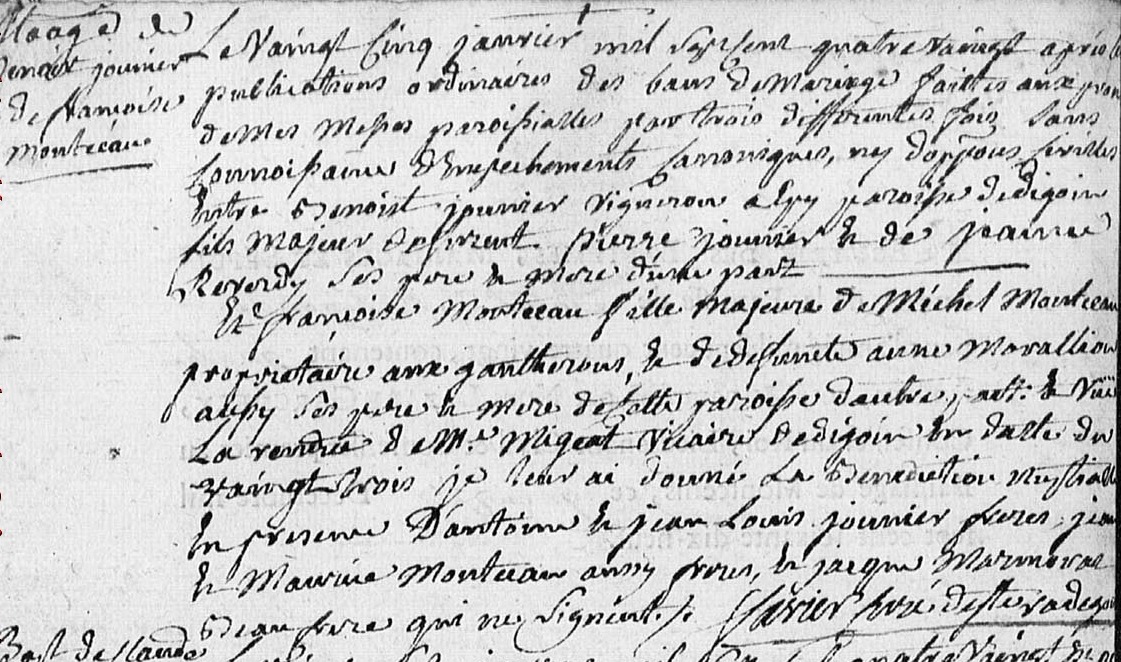 Mariage de
Benoit jounier
de françoise
Montceau
Le Vaingt Cinq janvier mil sept sent quatre vaingt après les
publications ordinaires des bans de Mariage faittes aux prones
de Mes Messes paroissialles par trois differentes fois sans
Connoissance d'Empechements Canoniques, ny d'oppons Civilles
Entre Benoist jounier Vigneron a paroisse de digoin
fils Majeur de Pierre jounier & de jeanne
Reverdy ses pere & mere d'une part
Et françoise Montceau fille Majeure de Méchel Montceau
propriétaire aux gautherons, & de defunte anne Moraillon
aussy ses pere & mere de cette paroisse d'autre part. & Vue
La remise de Mre Migeat Vicaire de digoin En datte du
vaingt trois je leur ai donné La Benediction Nuptialle
En presence D'antoine & jean Louis jounier freres, jean
& Maurice Montceau aussy freres, & jacque
Beaufrere qui ne signent./. Curé de Ste radegonde
Bapt de Claude
quatre Vaingt